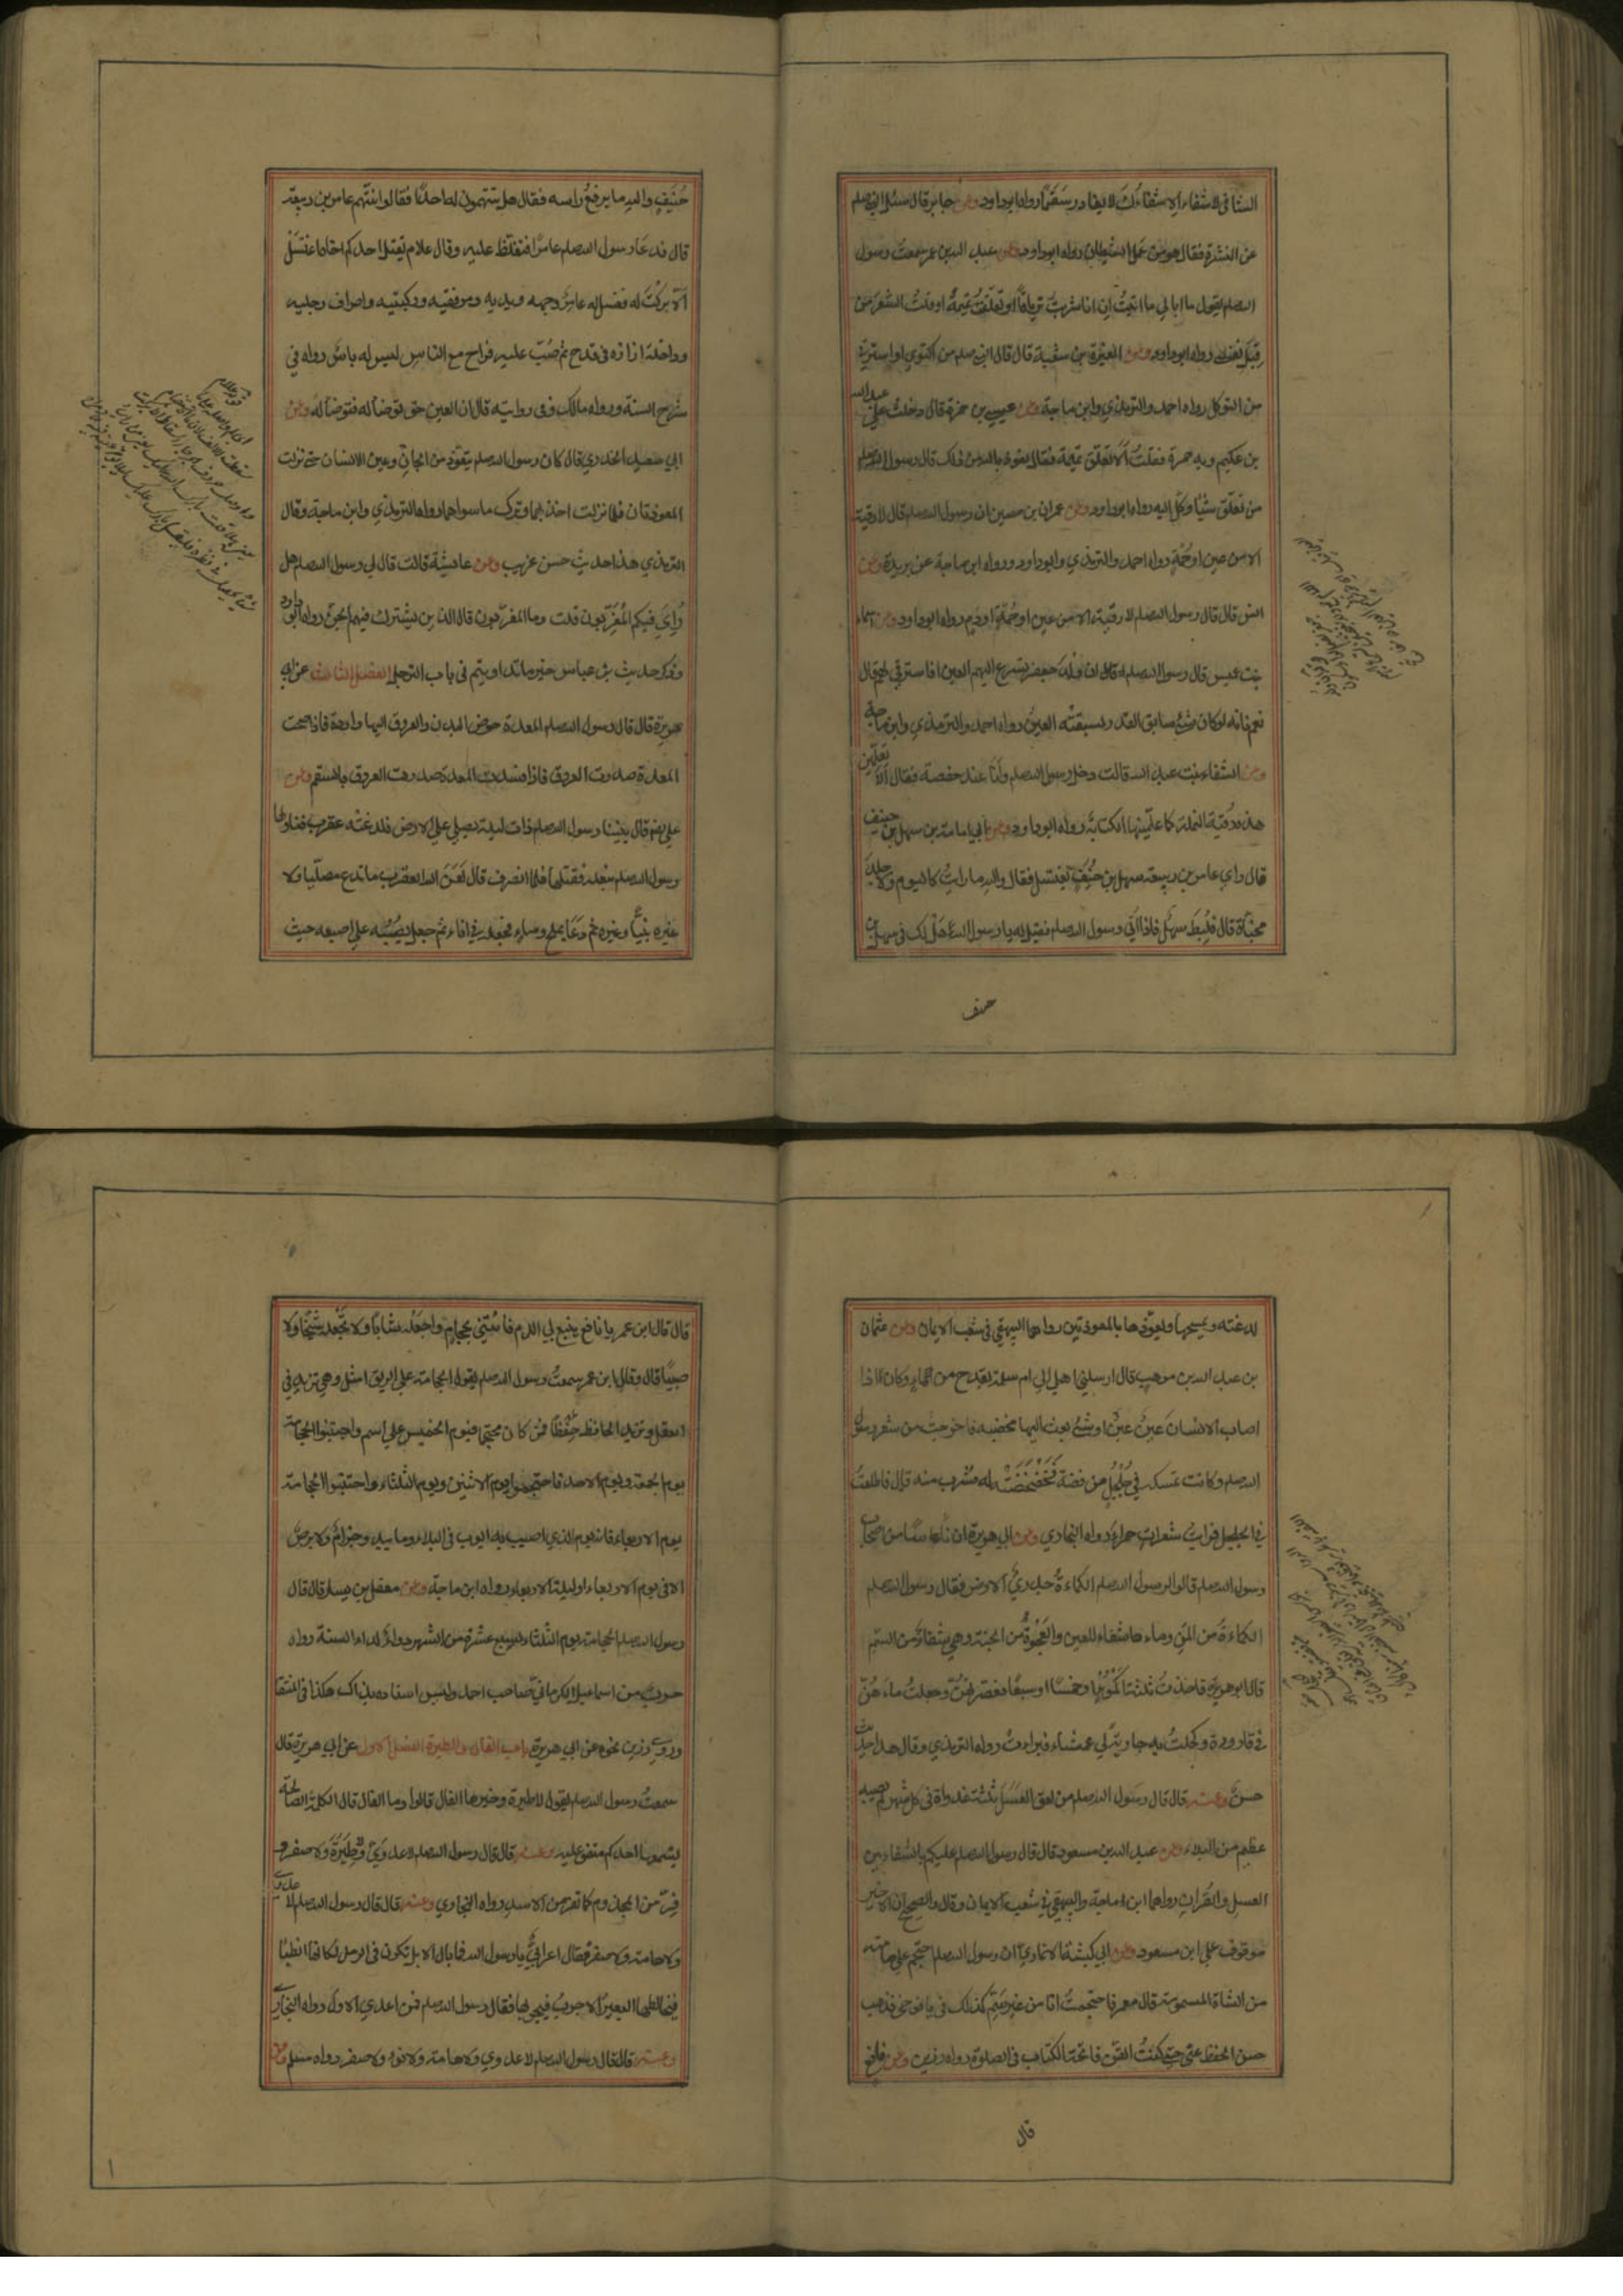 الشافي لا شفاء الا شفاؤك لا يغادر سقما رواه ابو داود وعن جابر قال سئل النبي صلعم
عن النشرة فقال هو من عمل الشيطان رواه ابو داود وعن عبد الله بن عمر سمعت رسول
الله صلعم يقول ما ابالي ما اتيت ان انا شربت ترياقا او تعلقت تميمة او قلت الشعر من
قبل نفسي رواه ابو داود وعن المغيرة بن شعبة قال قال النبي صلعم من اكتوي او استرقي
من التوكل رواه احمد والترمذي وابن ماجة وعن عيسي بن حمزة قال دخلت علي عبد الله
بن عكيم وبه حمرة فقلت الا تعلق تميمة فقال نعوذ بالله من ذلك قال رسول الله صلعم
من تعلق شيئا وكل اليه رواه ابو داود وعن عمران بن حصين ان رسول الله صلعم قال لا رقية
الا من عين او حمة رواه احمد والترمذي وابو داود ورواه ابن ماجة عن بريدة وعن
انس قال قال رسول الله صلعم لا رقية الا من عين او حمة او دم رواه ابو داود وعن اسماء
بنت عميس قال رسول الله صلعم ان ولد جعفر تسرع اليهم العين افاسترقي لهم قال
نعم فانه لو كان شيء سابق القدر لسبقته العين رواه احمد والترمذي وابن ماجة
وعن الشفاء بنت عبد الله قالت دخل رسول الله صلعم وانا عند حفصة فقال الا تعلمين
هذه رقية النملة كما علمتيها الكتابة رواه ابو داود وعن ابي امامة بن سهل بن حنيف
قال راي عامر بن ربيعة سهل بن حنيف يغتسل فقال والله ما رايت كاليوم ولا جلد
مخباة قال فلبط سهل فاذا اتي رسول الله صلعم فقيل له يا رسول الله هل لك في سهل بن
حنيف
حنيف والله ما يرفع راسه فقال هل تتهمون له احدا فقالوا نتهم عامر بن ربيعة
قال فدعا رسول الله صلعم عامرا فتغلظ عليه وقال علام يقتل احدكم اخاه اغتسل
الا بركت له فغسل له عامر وجهه ويديه ومرفقيه وركبتيه واطراف رجليه
وداخلة ازاره في قدح ثم صب عليه فراح مع الناس ليس له باس رواه في
شرح السنة ورواه مالك وفي روايته قال ان العين حق توضا له فتوضا له وعن
ابي سعيد الخدري قال كان رسول الله صلعم يتعوذ من الجان وعين الانسان حتي نزلت
المعوذتان فلما نزلت اخذ بهما وترك ما سواهما رواه الترمذي وابن ماجة وقال
الترمذي هذا حديث حسن غريب وعن عايشة قالت قال لي رسول الله صلعم هل
رؤي فيكم المغربون قلت وما المغربون قال الذين يشترك فيهم الجن رواه ابو داود
وذكر حديث بن عباس خير ما تداويتم في باب الترجل الفصل الثالث عن ابي
هريرة قال قال رسول الله صلعم المعدة حوض البدن والعروق اليها واردة فاذا صحت
المعدة صدرت العروق فاذا فسدت المعدة صدرت العروق بالسقم وعن
علي رضه قال بينا رسول الله صلعم ذات ليلة يصلي علي الارض فلدغته عقرب فناولها
رسول الله صلعم بنعله فقتلها فلما انصرف قال لعن الله العقرب ما تدع مصليا ولا
غيره نبيا وغيره ثم دعا بملح وماء فجعله في اناء ثم جعل يصبه علي اصبعه حيث
لدغته ويمسحها ويعوذها بالمعوذتين رواهما البيهقي في شعب الايمان وعن عثمان
بن عبد الله بن موهب قال ارسلني اهلي الي ام سلمة بقدح من الماء وكان اذا
اصاب الانسان عين او شيء بعث اليها مخضبه فاخرجت من شعر رسول
الله صلعم وكانت تمسكه في جلجل من فضة فخضخضته له فشرب منه قال فاطلعت
في الجلجل فرايت شعرات حمراء رواه البخاري وعن ابي هريرة ان ناسا من اصحاب
رسول الله صلعم قالوا لرسول الله صلعم الكماءة جدري الارض فقال رسول الله صلعم
الكماءة من المن وماءها شفاء للعين والعجوة من الجنة وهي شفاء من السم
قال ابو هريرة فاخذت ثلثة اكمؤ او خمسا او سبعا فعصرتهن وجعلت ماءهن
في قارورة وكحلت به جارية لي عمشاء فبرات رواه الترمذي وقال هذا حديث
حسن وعنه قال قال رسول الله صلعم من لعق العسل ثلث غدواة في كل شهر لم يصبه
عظيم من البلاء وعن عبد الله بن مسعود قال قال رسول الله صلعم عليكم بالشفاءين
العسل والقران رواهما ابن ماجة والبيهقي في شعب الايمان وقال والصحيح ان الاخير
موقوف علي ابن مسعود وعن ابي كبشة الانماري ان رسول الله صلعم احتجم علي هامته
من الشاة المسمومة قال معمر فاحتجمت انا من غير سم كذلك في يافوخي فذهب
حسن الحفظ عني حتي كنت القن فاتحة الكتاب في الصلوة رواه رزين وعن نافع
قال
قال قال ابن عمر يا نافع ينبع لي الدم فاتني بحجام واجعله شابا ولا تجعله شيخا ولا
صبيا قال وقال ابن عمر سمعت رسول الله صلعم يقول الحجامة علي الريق امثل وهي تزيد في
العقل وتزيد الحافظ حفظا فمن كان محتجما فيوم الخميس علي اسم واجتنبوا الحجامة
يوم الجمعة ويوم الاحد فاحتجموا يوم الاثنين ويوم الثلثاء واجتنبوا الحجامة
يوم الاربعاء فانه يوم الذي اصيب به ايوب في البلاء وما يبد وجذام ولا برص
الا في يوم الاربعاء او ليلة الاربعاء رواه ابن ماجة وعن معقل بن يسار قال قال
رسول الله صلعم الحجامة يوم الثلثاء لسبع عشرة من الشهر دواء لداء السنة رواه
حرب بن اسماعيل الكرماني صاحب احمد وليس اسناده بذاك هكذا في المنتقا
وروي رزين نحوه عن ابي هريرة باب الفال والطيرة الفصل الاول عن ابي هريرة قال
سمعت رسول الله صلعم يقول لا طيرة وخيرها الفال قالوا وما الفال قال الكلمة الصالحة
يسمعها احدكم متفق عليه وعنه قال قال رسول الله صلعم لا عدوي ولا طيرة ولا صفر و
فر من المجذوم كما تفر من الاسد رواه البخاري وعنه قال قال رسول الله صلعم لا عدوي
ولا هامة ولا صفر فقال اعرابي يا رسول الله فما بال الابل تكون في الرمل لكانها الظبا
فيخالطها البعير الاجرب فيجربها فقال رسول الله صلعم فمن اعدي الاول رواه البخاري
وعنه قال قال رسول الله صلعم لا عدوي ولا هامة ولا نوء ولا صفر رواه مسلم وعن